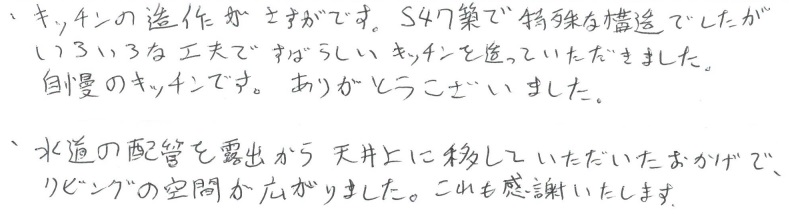 、キッチンの造作がさすがです。S47築で特殊な構造でしたが
いろいろな工夫ですばらしいキッチンを造っていただきました。
自慢のキッチンです。ありがとうございました。
、水道の配管を露出から天井上に移していただいたおかげで、
リビングの空間が広がりました。これも感謝いたします.